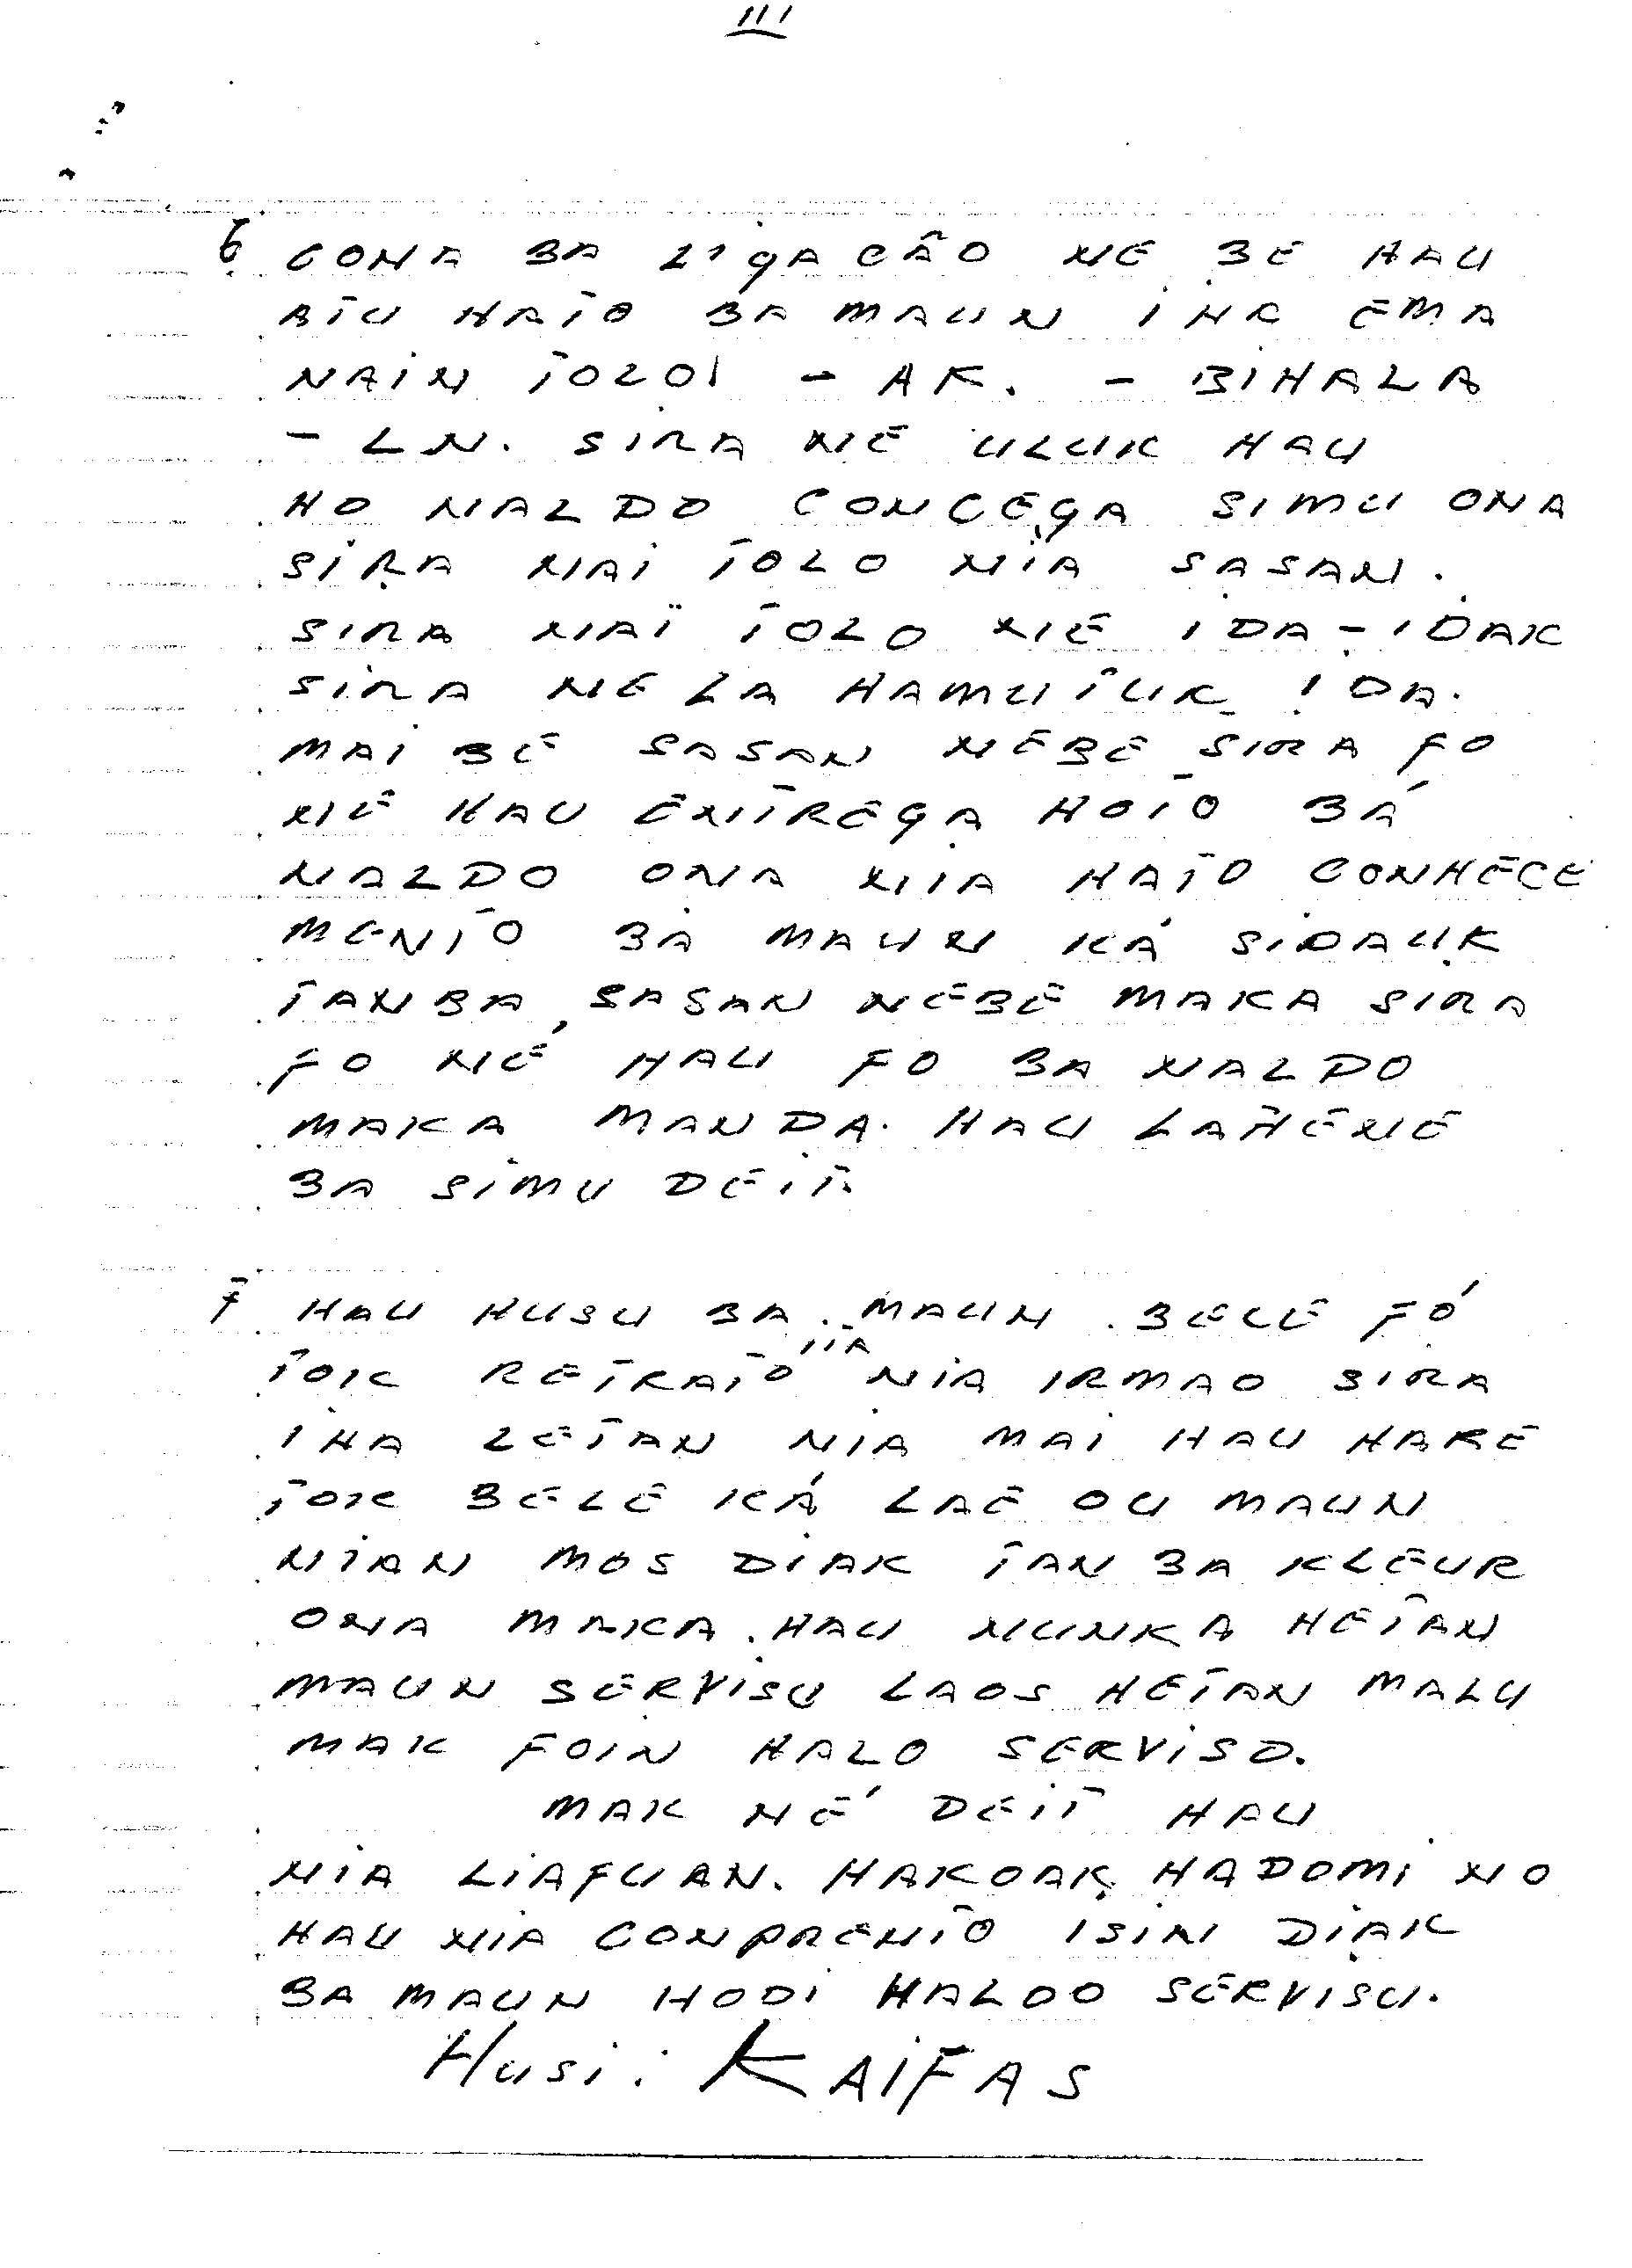 III
6 CONA BA LIGACÃO NE BE HAU
ATU HATO BA MAUN IHA EMA
NAIN TOLOI - AK. - BIHALA
- LN. SIRA NE ULUK HAU
HO NALDO CONCEGA SIMU ONA
SIRA NAI TOLO NIA SASAN.
SIRA NAI TOLO NE IDA-IDAK
SIRA NE LA HAMUTUK IDA.
MAI BE SASAN NEBE SIRA FO
NE HAU ENTREGA HOTO BÁ
NALDO ONA NIA HATO CONHECE
MENTO BA MAUN KÁ SIDAUK
TANBA, SASAN NEBE MAKA SIRA
FO NE HAU FO BA NALDO
MAKA MANDA. HAU LAHENE
BA SIMU DEIT.
7 HAU HUSU BA MAUN BELE FÓ
TOK RETRATO ITA NIA IRMAO SIRA
IHA LETAN NIA MAI HAU HARE
TOK BELE KÁ LAE OU MAUN
NIAN MOS DIAK TAN BA KLEUR
ONA MAKA HAU NUNKA HETAN
MAUN SERVISU LAOS HETAN MALU
MAK FOIN HALO SERVISO.
MAK NÉ DEIT HAU
NIA LIAFUAN. HAKOAK HADOMI NO
HAU NIA CONPRENTO ISIN DIAK
BA MAUN HODI HALOO SERVISU.
Husi: KAIFAS